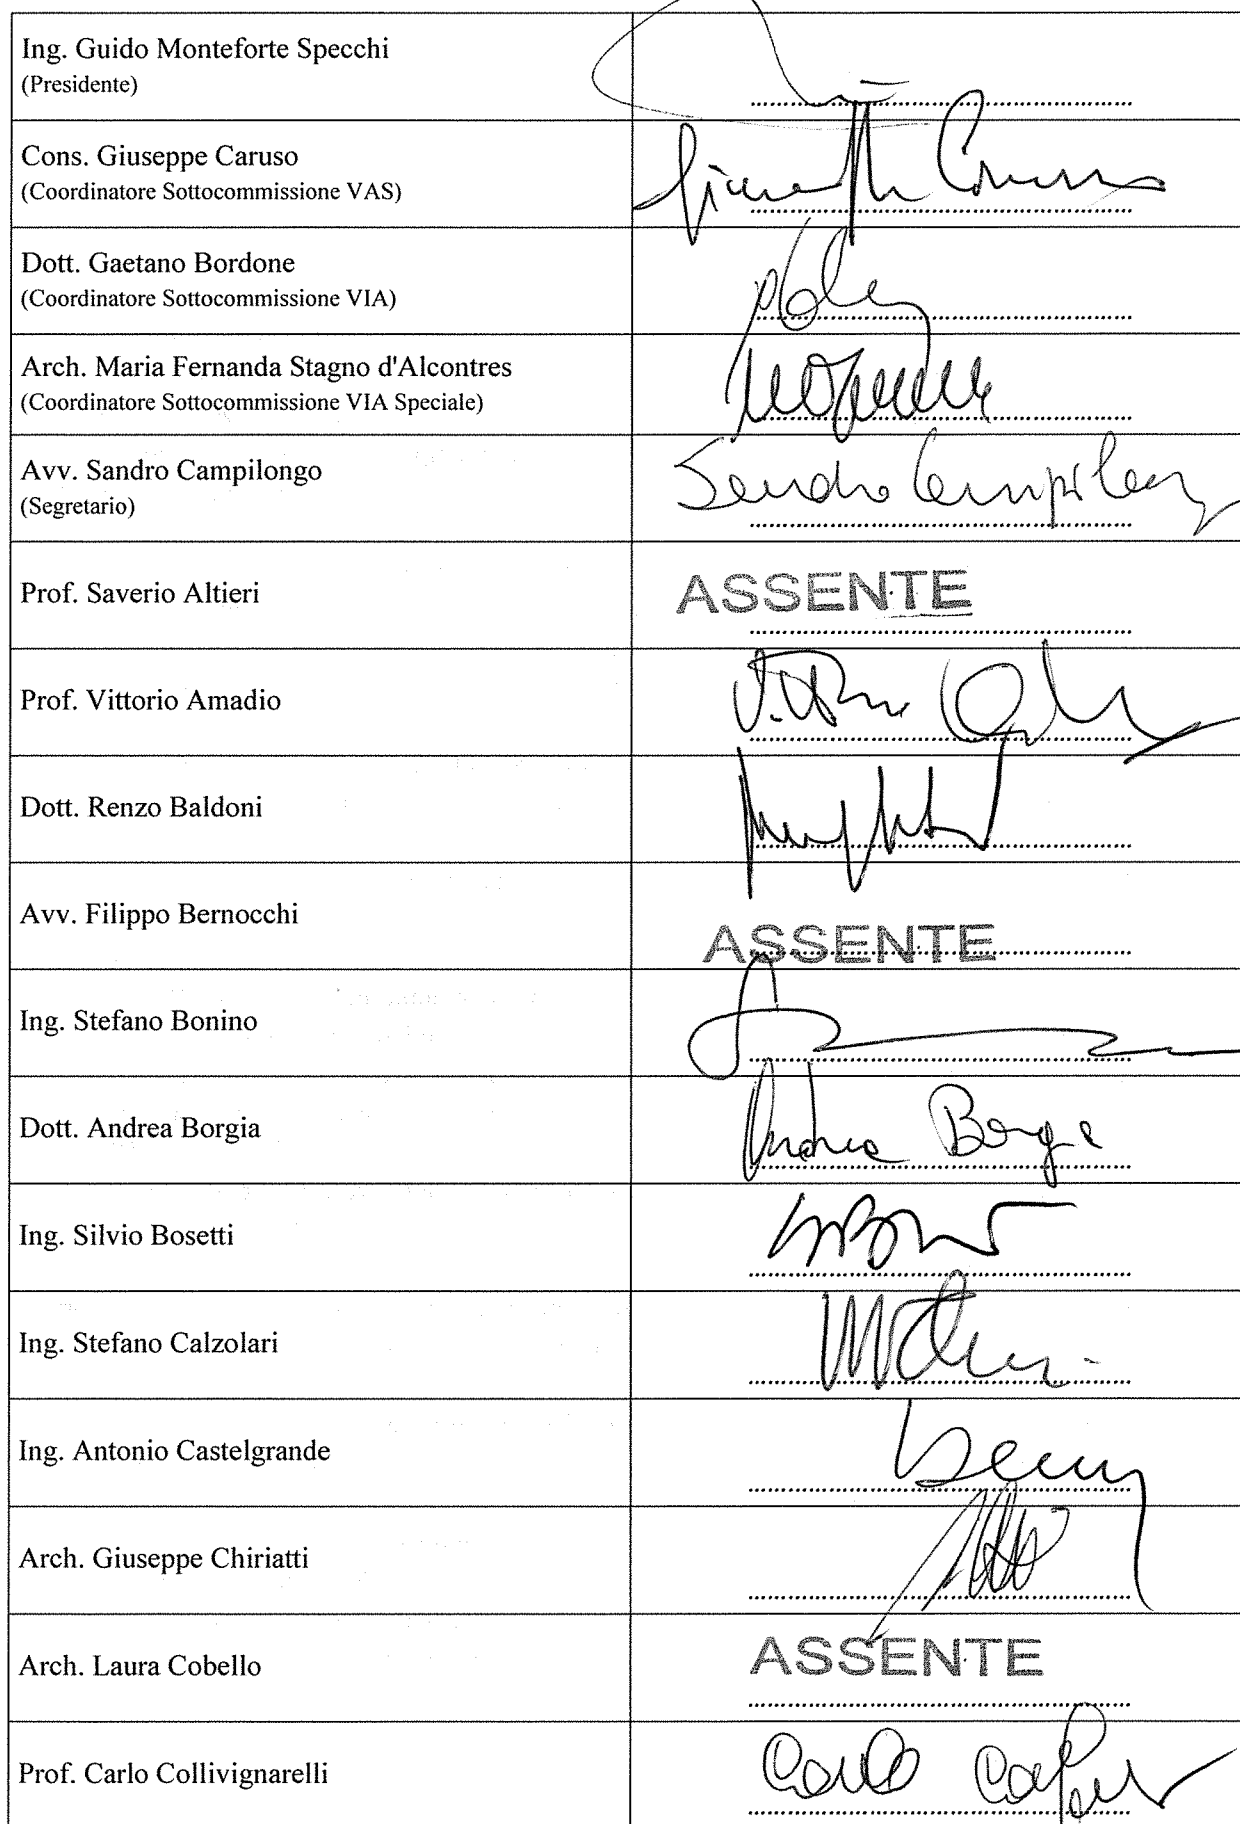 Ing. Guido Monteforte Specchi
(Presidente)
Cons. Giuseppe Caruso
(Coordinatore Sottocommissione VAS)
Dott. Gaetano Bordone
(Coordinatore Sottocommissione VIA)
Arch. Maria Fernanda Stagno d'Alcontres
(Coordinatore Sottocommissione VIA Speciale)
Avv. Sandro Campilongo
(Segretario)
Sandro Campilongo
Prof. Saverio Altieri
ASSENTE
Prof. Vittorio Amadio
Dott. Renzo Baldoni
Avv. Filippo Bernocchi
ASSENTE
Ing. Stefano Bonino
Dott. Andrea Borgia
Andrea Borgia
Ing. Silvio Bosetti
Ing. Stefano Calzolari
Ing. Antonio Castelgrande
Arch. Giuseppe Chiriatti
Arch. Laura Cobello
ASSENTE
Prof. Carlo Collivignarelli